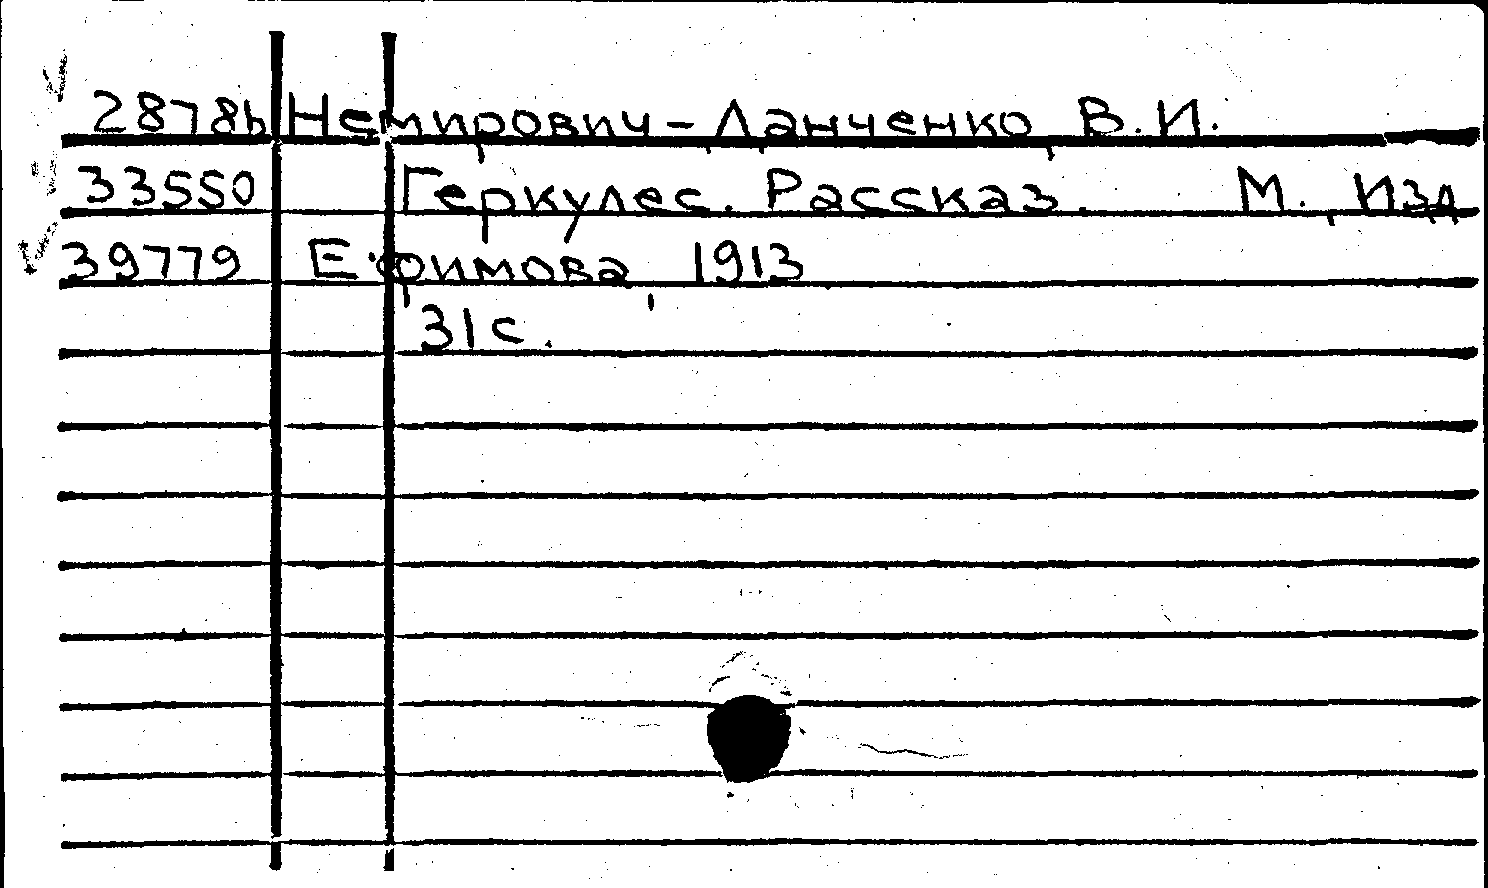 28786 Немирович-Данченко, В.И.
33550 Геркулес. Рассказ. М., Изд
39779 Ефимова, 1913
31с.